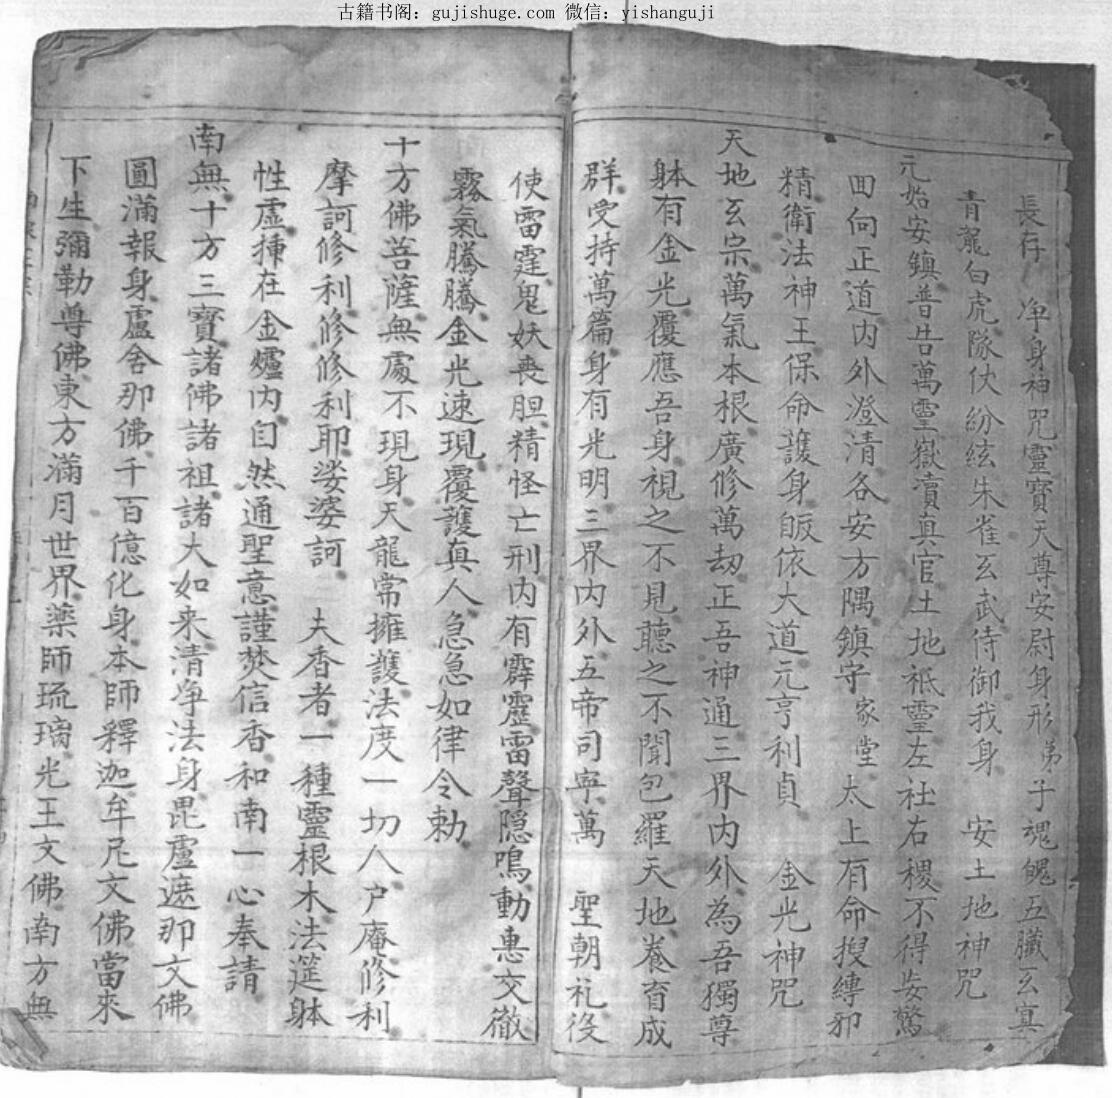 古籍书阁：gujishuge.com 微信：yishanguji
長存 净身神咒靈寶天尊安尉身形弟子魂魄五臟玄冥
青龍白虎隊仗紛紜朱雀玄武侍御我身 安土地神咒
元始安鎮普告萬靈嶽瀆真官土地祇靈左社右稷不得妄驚
囬向正道内外澄清各安方隅鎮守家堂太上有命搜縛邪
精衛法神王保命護身皈依大道元亨利貞 金光神咒
天地玄宗萬氣本根廣修萬劫正吾神通三界内外為吾獨尊
躰有金光覆應吾身視之不見聽之不聞包羅天地養育成
群受持萬篇身有光明三界内外五帝司寧萬 聖朝礼役
使雷霆鬼妖喪胆精怪亡刑内有霹靂雷聲隱鳴動惠交徹
霧氣騰騰金光速現覆護真人急急如律令勅
十方佛菩薩無處不現身天龍常擁護法度一切人户庵修利
摩訶修利修修利耶娑婆訶 夫香者一種靈根木法筵躰
性虛揷在金爐内自然通聖意謹焚信香和南一心奉請
南無十方三寶諸佛諸祖諸大如来清净法身毘盧遮那文佛
圓滿報身盧舍那佛千百億化身本師釋迦牟尼文佛當來
下生彌勒尊佛東方滿月世界藥師琉璃光王文佛南方無